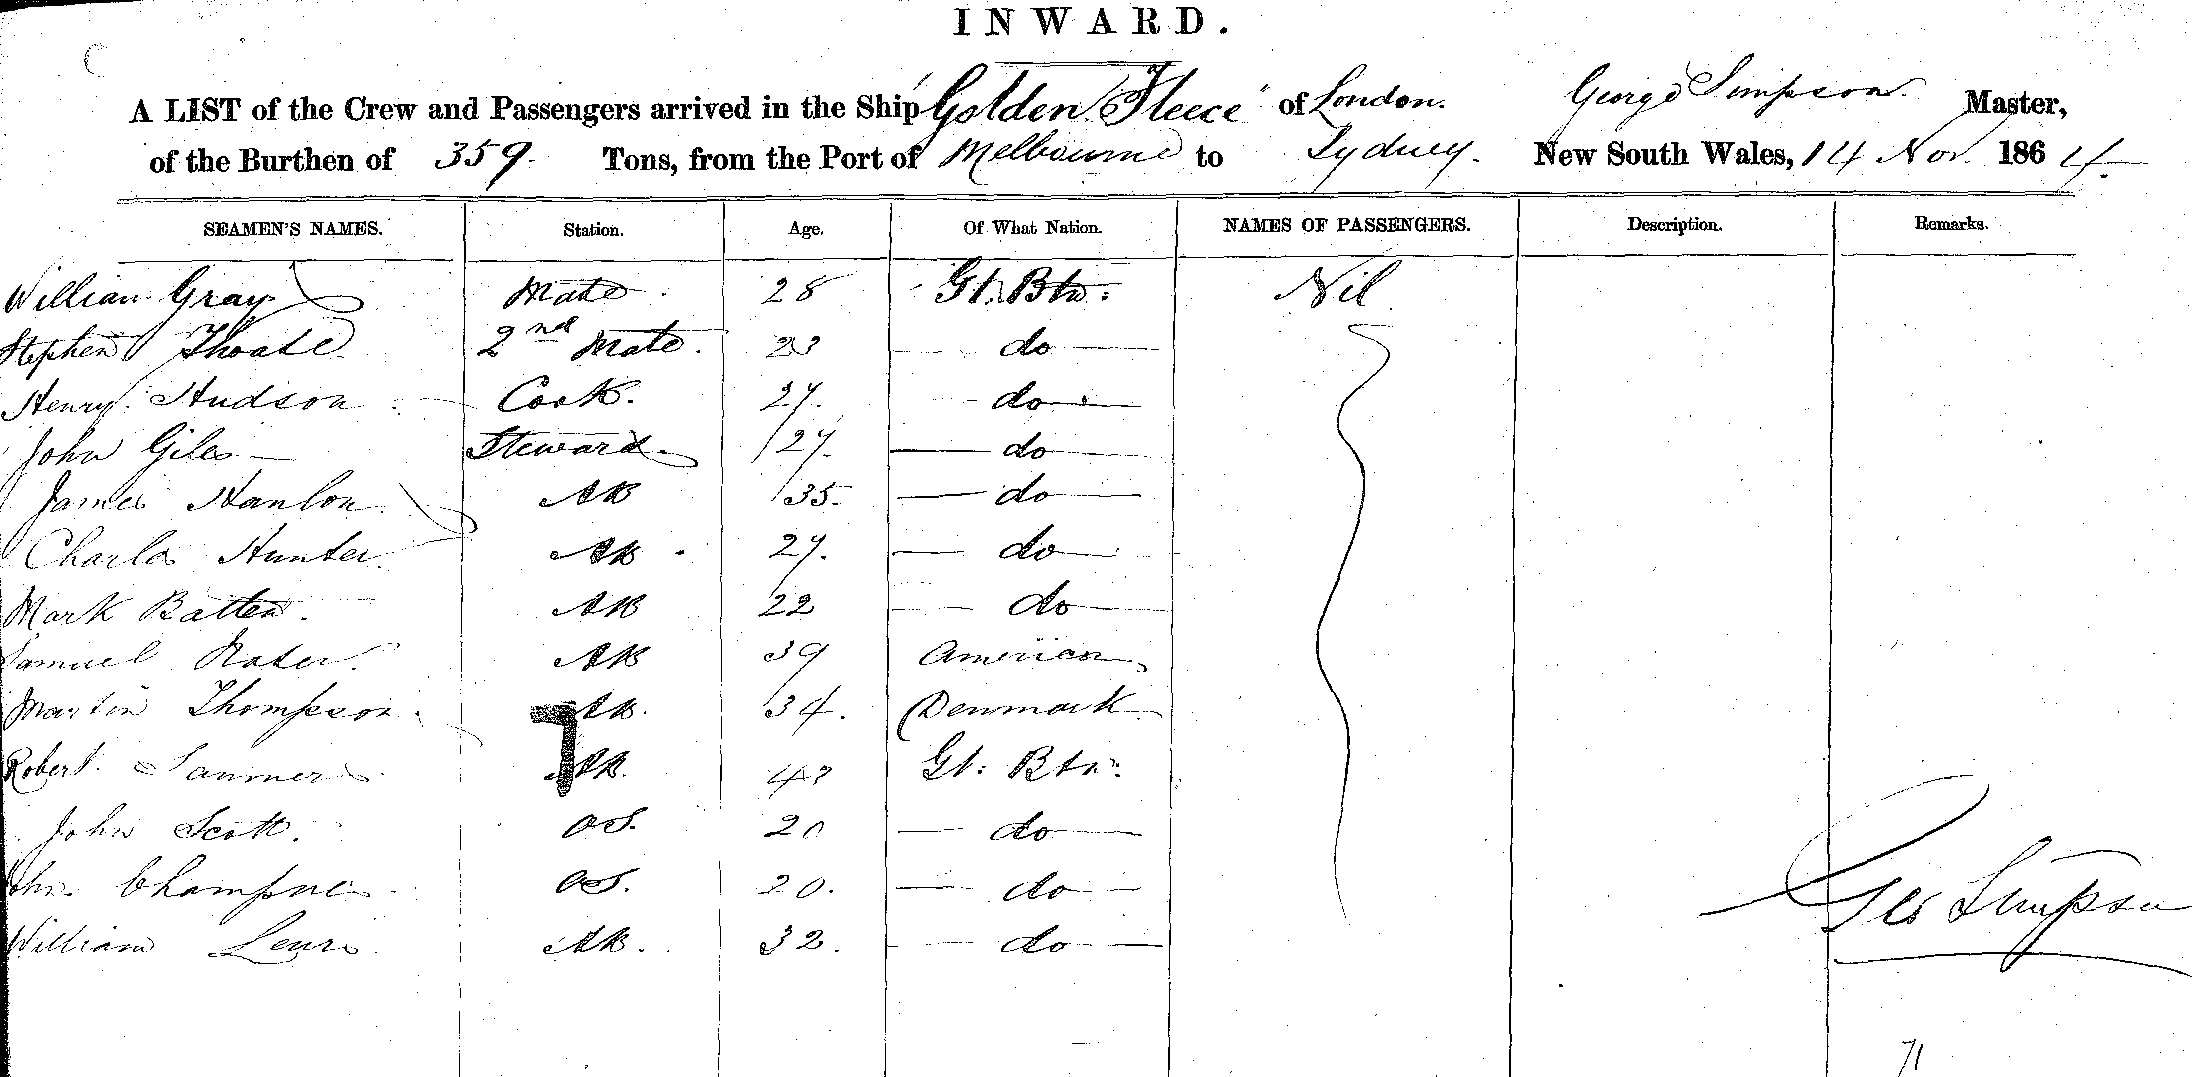 INWARD.
A LIST of the Crew and Passengers arrived in the Ship "Golden Fleece" of London. George Simpson. Master,
of the Burthen of 359. Tons, from the Port of Melbourne to Sydney. New South Wales, 14 Nov. 1864.
SEAMEN'S NAMES. Station. Age. Of What Nation. NAMES OF PASSENGERS. Description. Remarks.
William Gray Mate 28 Gt. Btn: Nil
Stephen 2nd Mate. 23 do
Henry Hudson Cook. 27. do
John Giles Steward. 27. do
James Hanlon AB 35. do
Charles Hunter AB 27. do
Mark Batten. AB 22 do
Samuel AB 39 American
Martin Thompson AB. 34. Denmark
Robert AB. Gt: Btn:
John Scott. OS. 20 do
John OS. 20. do
William Lewis AB. 32. do
Geo Simpson
71